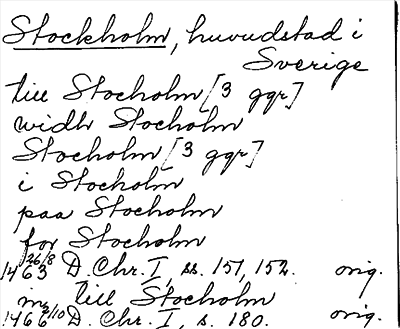 Stockholm, huvudstad i
Sverige
till Stocholm [3 ggr]
widh Stocholm
Stocholm [3 ggr]
i Stocholm
paa Stocholm
for Stocholm
1463 26/8 D. Chr. I, ss. 151, 152. orig.
in till Stocholm
1466 /10 D. Chr. I, s. 180. orig.